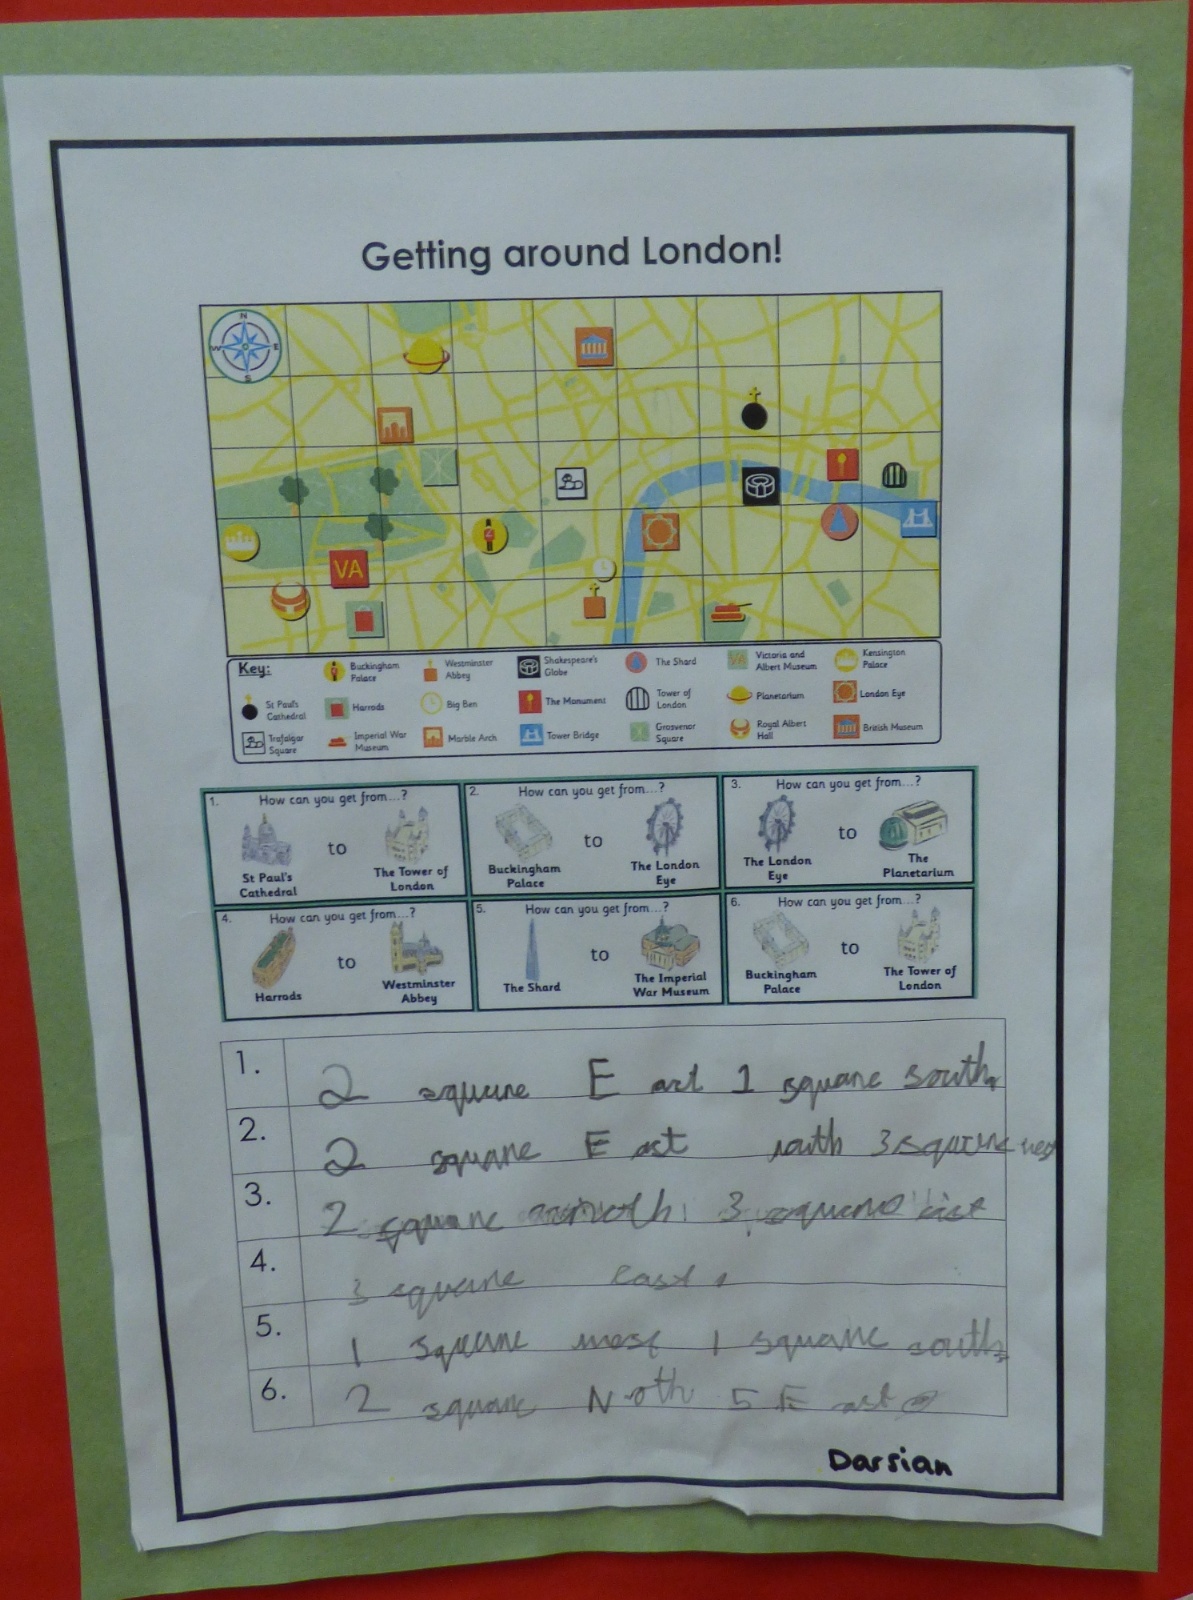 Getting around London!
N
W E
S
VA
Key:
Buckingham Palace
Westminster Abbey
Shakespeare's Globe
The Shard
Victoria and Albert Museum
Kensington Palace
St Paul's Cathedral
Harrods
Big Ben
The Monument
Tower of London
Planetarium
London Eye
Trafalgar Square
Imperial War Museum
Marble Arch
Tower Bridge
Grosvenor Square
Royal Albert Hall
British Museum
1. How can you get from...?
St Paul's Cathedral
to
The Tower of London
2. How can you get from...?
Buckingham Palace
to
The London Eye
3. How can you get from...?
The London Eye
to
The Planetarium
4. How can you get from...?
Harrods
to
Westminster Abbey
5. How can you get from...?
The Shard
to
The Imperial War Museum
6. How can you get from...?
Buckingham Palace
to
The Tower of London
1. 2 square East 1 square south.
2. 2 square East 3 square
3. 2 square 3 square
4. 3 square east.
5. 1 square 1 square south
6. 2 square North 5 East
Darsian